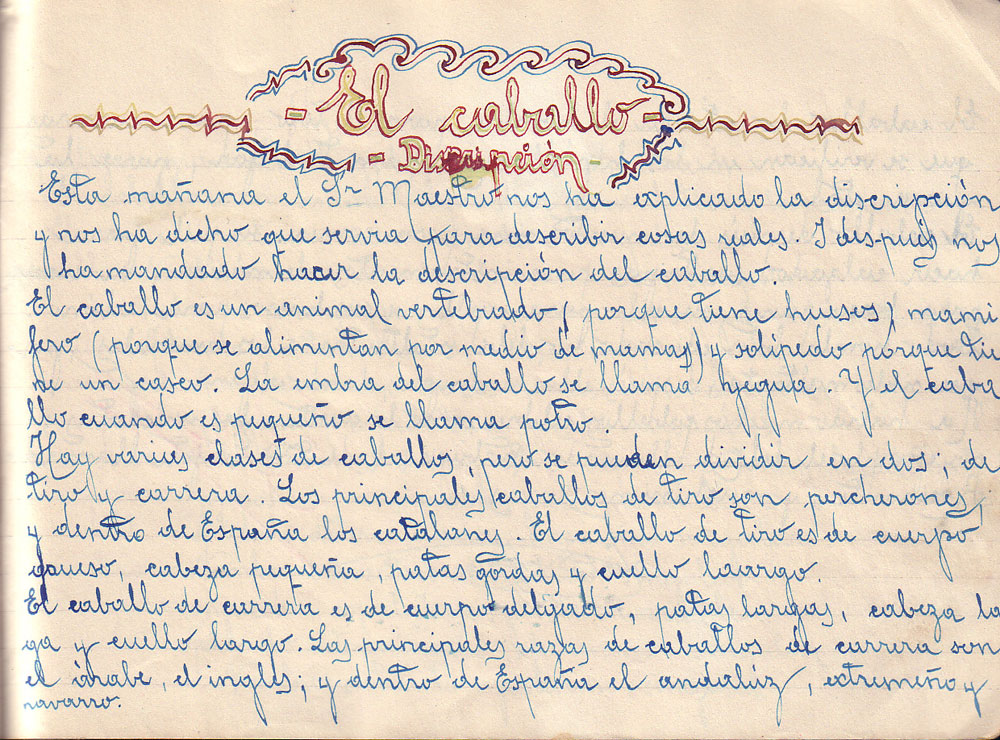 - El caballo -
- Discripción -
Esta mañana el Sr Maestro nos ha explicado la discripción
y nos ha dicho que servia para describir cosas reales. I des-pues nos
ha mandado hacer la descripción del caballo.
El caballo es un animal vertebrado (porque tiene huesos) mami
fero (porque se alimentan por medio de mamas) y solipedo porque tie
ne un casco. La embra del caballo se llama yegua. Y el caba
llo cuando es pequeño se llama potro.
Hay varies clases de caballos, pero se pueden dividir en dos; de
tiro y carrera. Los principales caballos de tiro son percherones,
y dentro de España los catalanes. El caballo de tiro es de cuerpo
grueso, cabeza pequeña, patas gordas y cuello laargo.
El caballo de carrera es de cuerpo delgado, patas largas, cabeza la
ga y cuello largo. Las principales razas de caballos de carrera son
el árabe, el ingles; y dentro de España el andalúz, extremeño y
navarro.